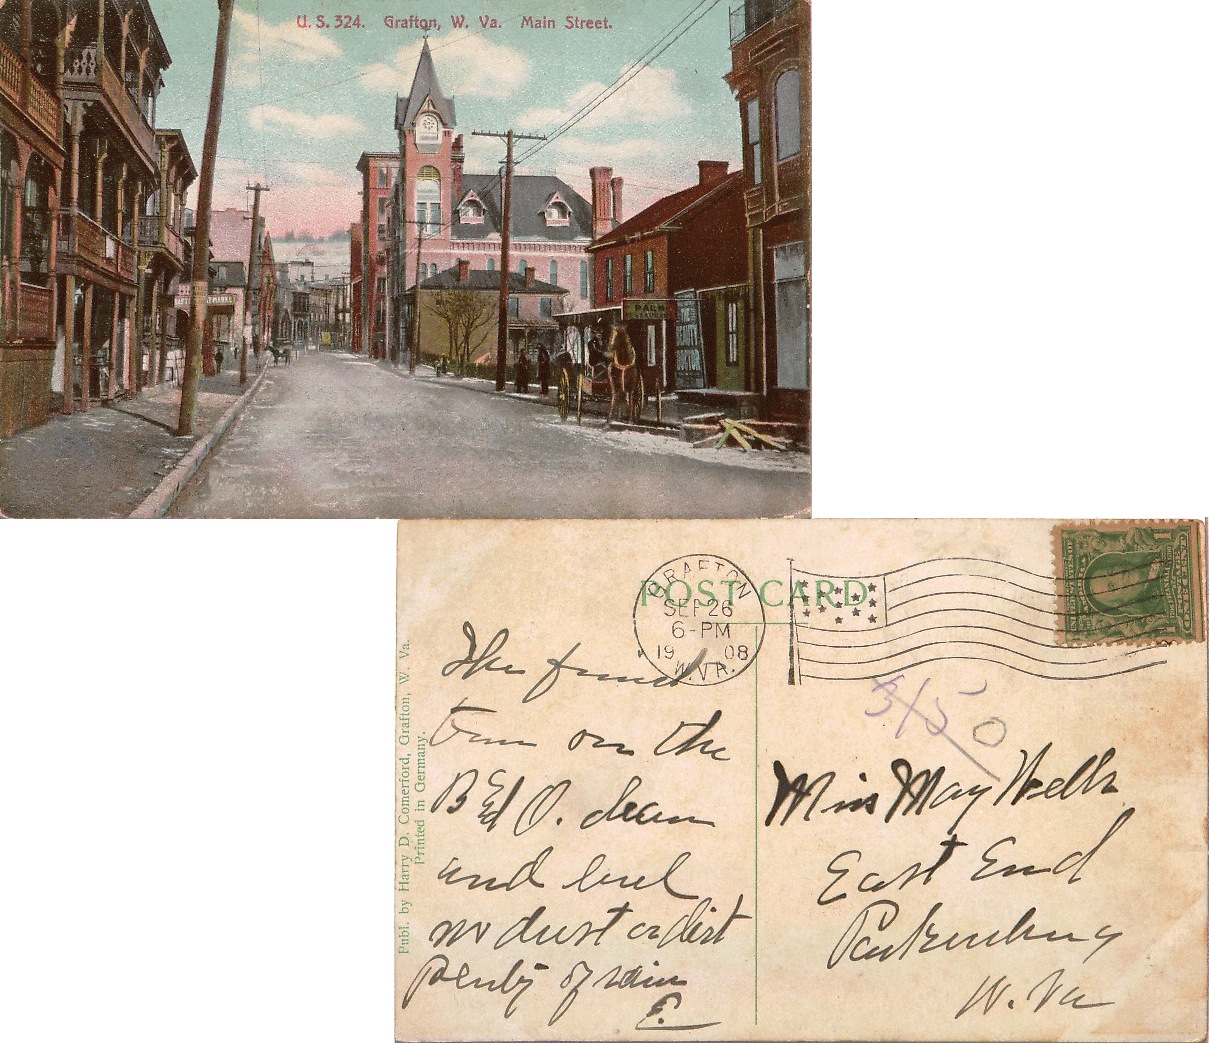 U. S. 324. Grafton, W. Va. Main Street.
MARKET
PALM
POST CARD
GRAFTON
SEP 26
6-PM
1908
W. VA.
Publ. by Harry D. Comerford, Grafton, W. Va.
Printed in Germany.
The
on the
B & O. clean
and
no dust or dirt
Plenty of rain
E.
3/5 0
Miss May Wells
East End
Parkersburg
W. Va
1
ONE CENT